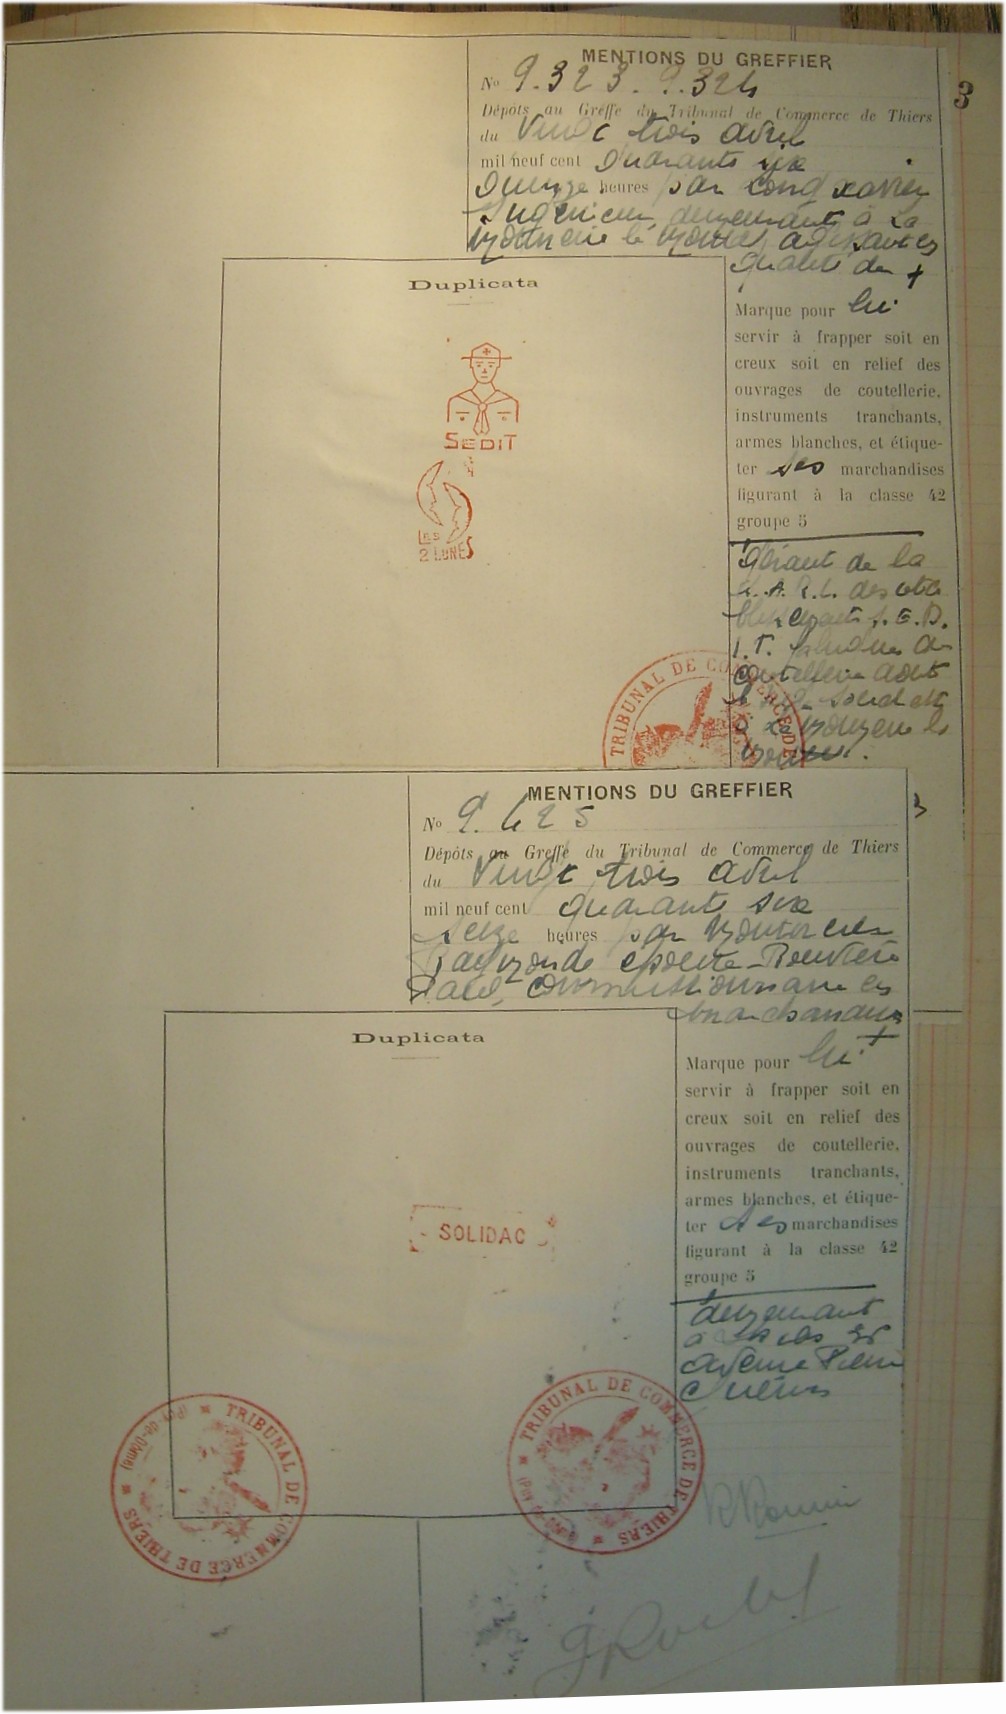 MENTIONS DU GREFFIER
No 9.323. 9.324
3
Dépôts au Greffe du Tribunal de Commerce de Thiers
du Vingt trois avril
mil neuf cent quarante six
quinze heures par xavier
Ingénieur demeurant à La
agissant en
qualité de +
Duplicata
SEDIT
LES
2 LUNES
Marque pour lui
servir à frapper soit en
creux soit en relief des
ouvrages de coutellerie,
instruments tranchants,
armes blanches, et étique-
ter ses marchandises
figurant à la classe 42
groupe 5
gérant de la
S.A.R.L. des éta
blissements S.E.D.
I.T. de
coutellerie dont
le siège social est
à la
TRIBUNAL DE COMMERCE DE
MENTIONS DU GREFFIER
No 9.425
Dépôts au Greffe du Tribunal de Commerce de Thiers
du Vingt trois avril
mil neuf cent quarante six
seize heures par
Raymonde épouse
Paul, commissionnaire en
marchandises +
Duplicata
SOLIDAC
Marque pour lui
servir à frapper soit en
creux soit en relief des
ouvrages de coutellerie,
instruments tranchants,
armes blanches, et étique-
ter ses marchandises
figurant à la classe 42
groupe 5
demeurant
à
avenue Pierre
Guérin
TRIBUNAL DE COMMERCE DE THIERS (Puy-de-Dôme)
TRIBUNAL DE COMMERCE DE THIERS (Puy-de-Dôme)